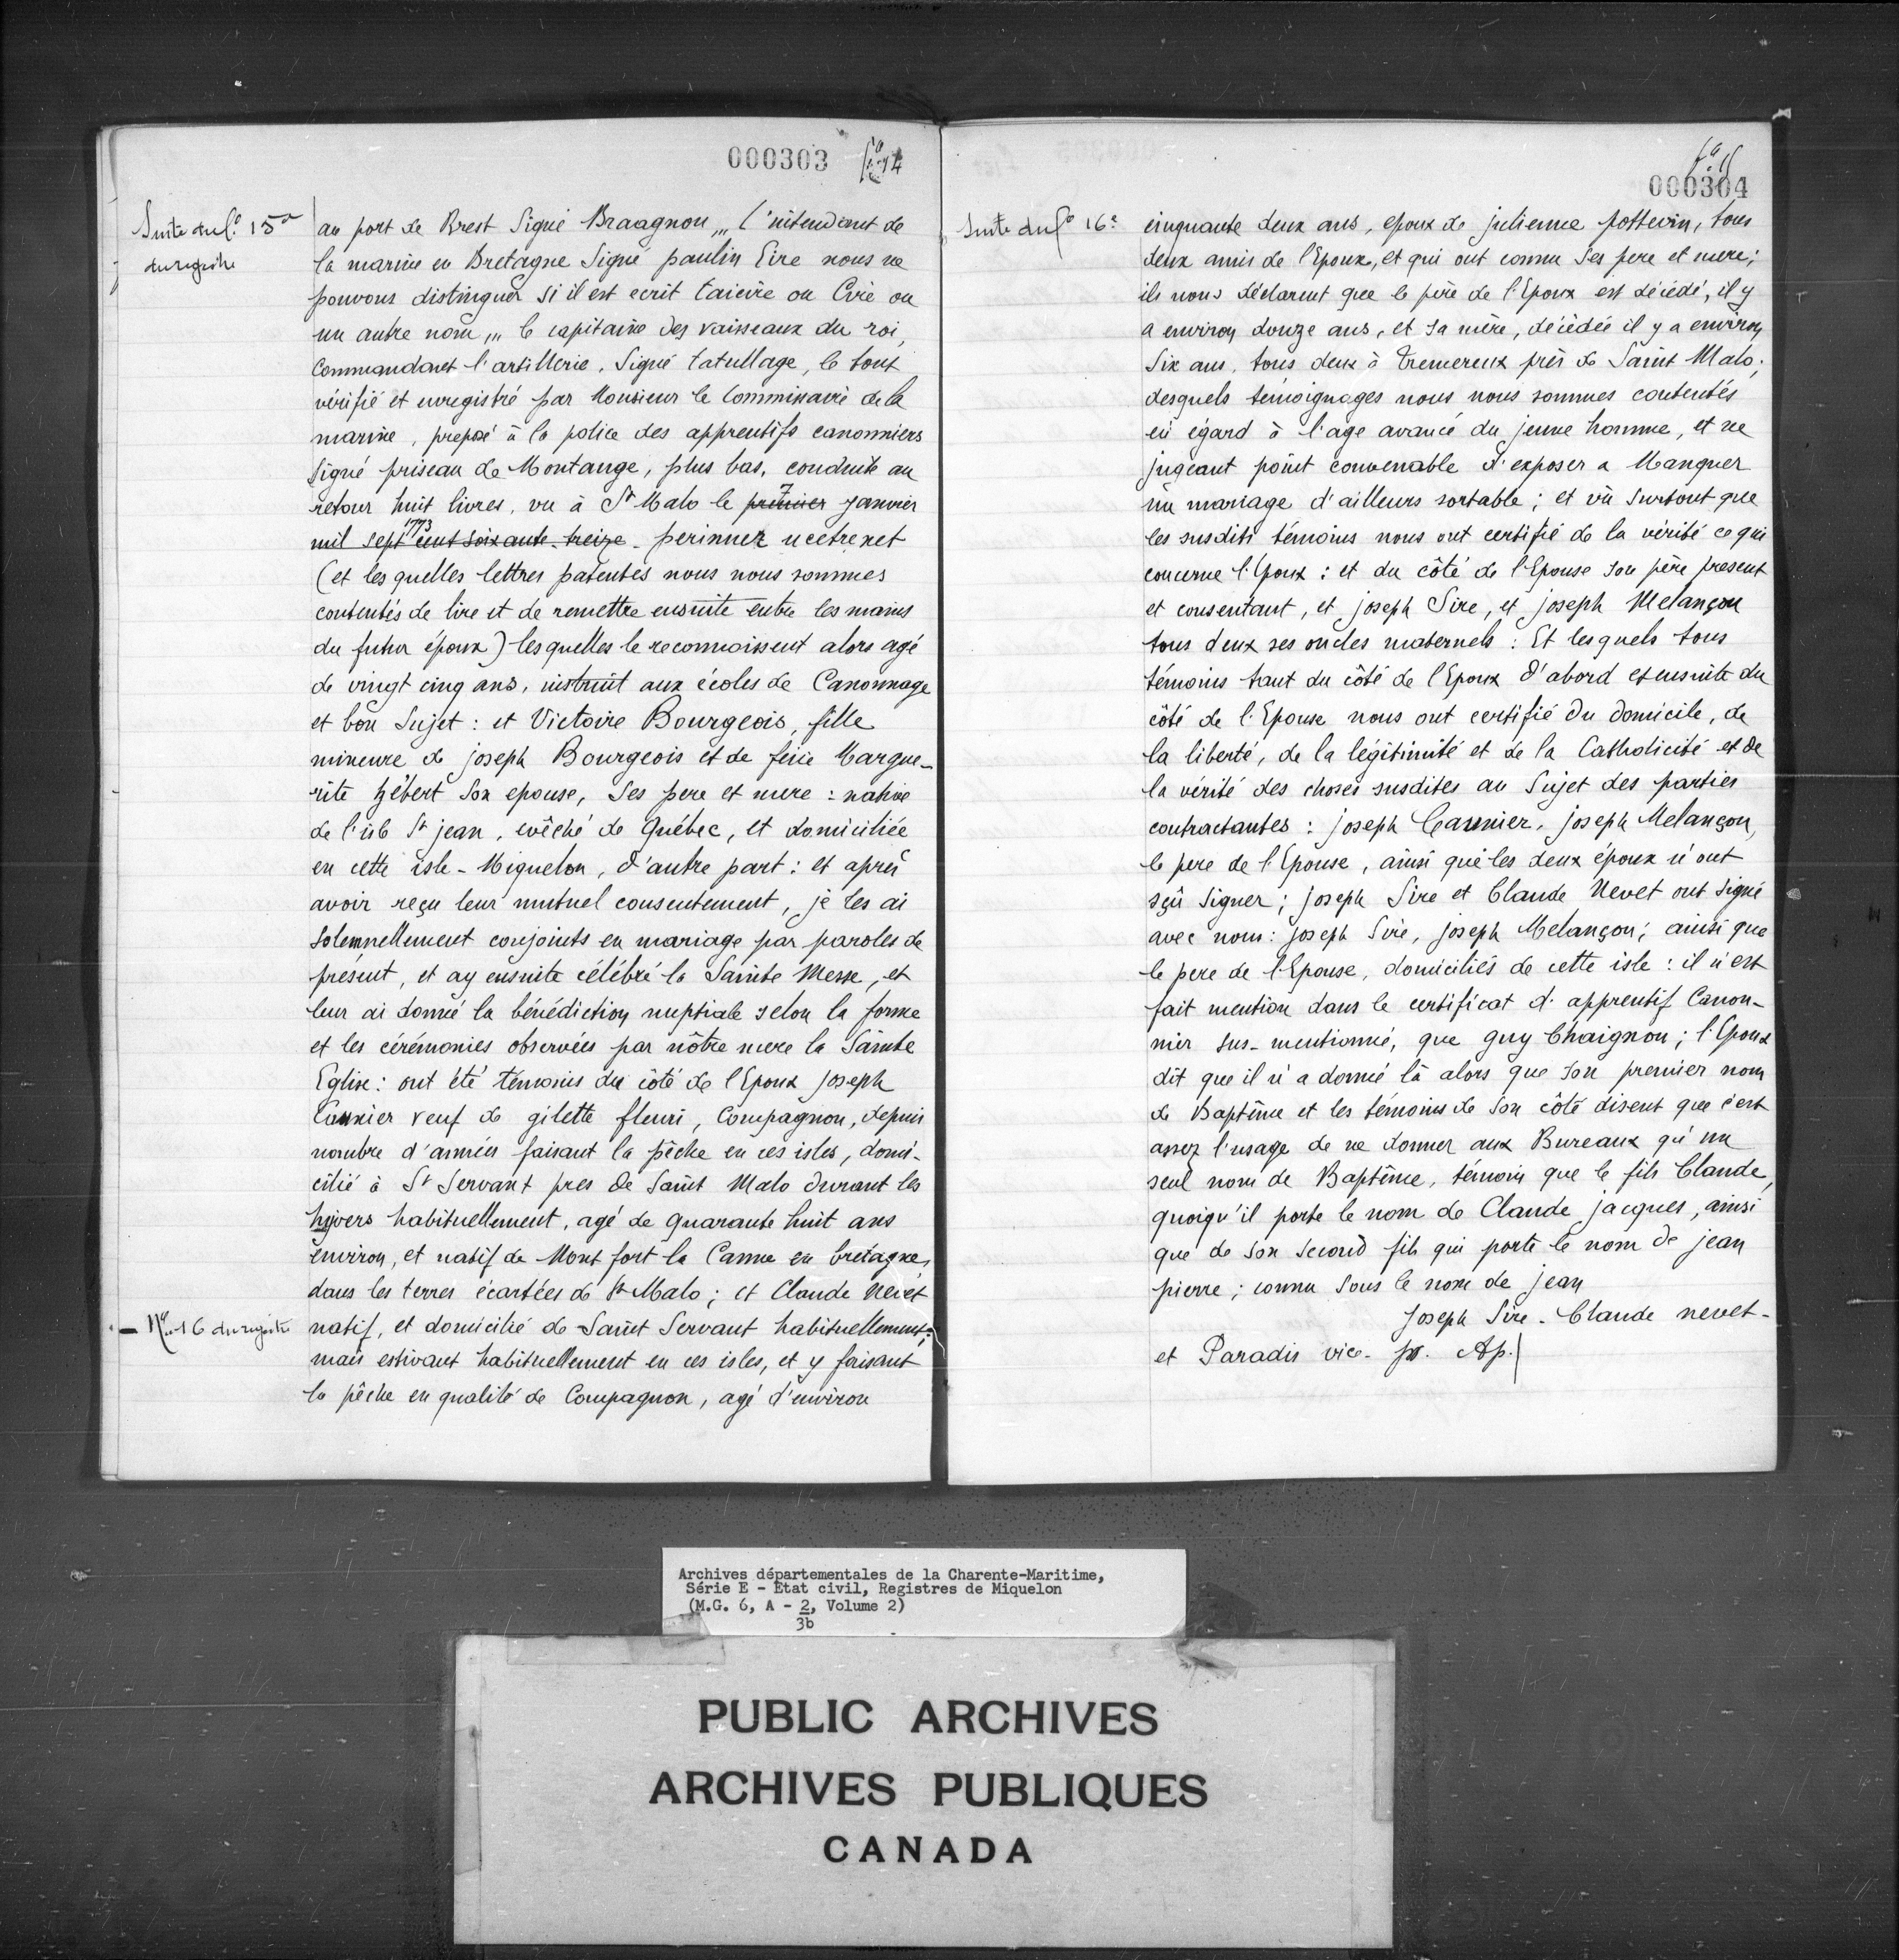 000303 fo 14
Suite du fo 15 ro
du registre
au port de Brest Signé Braagnon ,,, l'intendant de
la marine en Bretagne Signé paulin Eire nous ne
pouvons distinguer si il est ecrit taieire ou Cirie ou
un autre nom ,,, le capitaine des vaisseaux du roi,
Commandant l'artillerie, Signé tatullage, le tout
vérifié et enregistré par Monsieur le Commissaire de la
marine, preposé à la police des apprentifs canonniers
Signé priseau de Montange, plus bas, conduite au
retour huit livres, vu à St Malo le premier 7 janvier
mil sept cent soixante-treize 1773 - perinnez ucetrenet
(et les quelles lettres patentes nous nous sommes
contentés de lire et de remettre ensuite entre les mains
du futur époux) lesquelles le reconnaissent alors agé
de vingt cinq ans, instruit aux écoles de Canonnage
et bon Sujet : et Victoire Bourgeois, fille
mineure de joseph Bourgeois et de feüe Margue-
rite hébert son epouse, Ses pere et mere : native
de l'isle St jean, evêché de Québec, et domiciliée
en cette isle - Miquelon, d'autre part : et après
avoir reçu leur mutuel consentement, je les ai
solemnellement conjoints en mariage par paroles de
présent, et ay ensuite célébré la Sainte Messe, et
leur ai donné la bénédiction nuptiale selon la forme
et les cérémonies observées par nôtre mere la Sainte
Eglise : ont été témoins du côté de l'Epoux joseph
Caunier veuf de gilette fleuri, Compagnon, depuis
nombre d'années faisant la pêche en ces isles, domi-
cilié à St Servant pres de Saint Malo durant les
hyvers habituellement, agé de quarante huit ans
environ, et natif de Mont fort la Canne en bretagne,
dans les terres écartées de St Malo ; et Claude Nevet
- No 16 du registre
natif, et domicilié de Saint Servant habituellement ;
mais estivant habituellement en ces isles, et y faisant
la pêche en qualité de Compagnon, agé d'environ
fo 15
000304
Suite du fo 16 ro
cinquante deux ans, epoux de julienne pottevin, tous
deux amis de l'Epoux, et qui ont connu Ses pere et mere ;
ils nous déclarent que le père de l'Epoux est décédé, il y
a environ douze ans, et sa mère, décédée il y a environ
Six ans, tous deux à Tremereux près de Saint Malo ;
desquels témoignages nous nous sommes contentés
eü égard à l'age avancé du jeune homme, et ne
jugeant point convenable d'exposer a Manquer
un mariage d'ailleurs sortable ; et vû surtout que
les susdits témoins nous ont certifié de la vérité ce qui
concerne l'Epoux : et du côté de l'Epouse son père present
et consentant, et joseph Sire, et joseph Melançon
tous deux ses oncles maternels : Et lesquels tous
témoins tant du côté de l'Epoux d'abord et ensuite du
côté de l'Epouse nous ont certifié du domicile, de
la liberté, de la légitimité et de la Catholicité et de
la vérité des choses susdites au Sujet des parties
contractantes : joseph Caunier, joseph Melançon,
le pere de l'Epouse, ainsi que les deux époux n'ont
sçü signer ; joseph Sire et Claude Nevet ont signé
avec nous : joseph Sire, joseph Melançon ; ainsi que
le pere de l'Epouse, domiciliés de cette isle : il n'est
fait mention dans le certificat d'apprentif Canon-
nier sus-mentionné, que guy Chaignon ; l'Epoux
dit que il n'a donné là alors que son premier nom
de Baptême et les témoins de son côté disent que c'est
assez l'usage de ne donner aux Bureaux qu'un
seul nom de Baptême, témoin que le fils Claude,
quoiqu'il porte le nom de Claude jacques, ainsi
que de son second fils qui porte le nom de jean
pierre ; connu sous le nom de jean
Joseph Sire - Claude nevet -
et Paradis vice - pr. Ap.
Archives départementales de la Charente-Maritime,
Série E - Etat civil, Registres de Miquelon
(M.G. 6, A - 2, Volume 2)
3b
PUBLIC ARCHIVES
ARCHIVES PUBLIQUES
CANADA